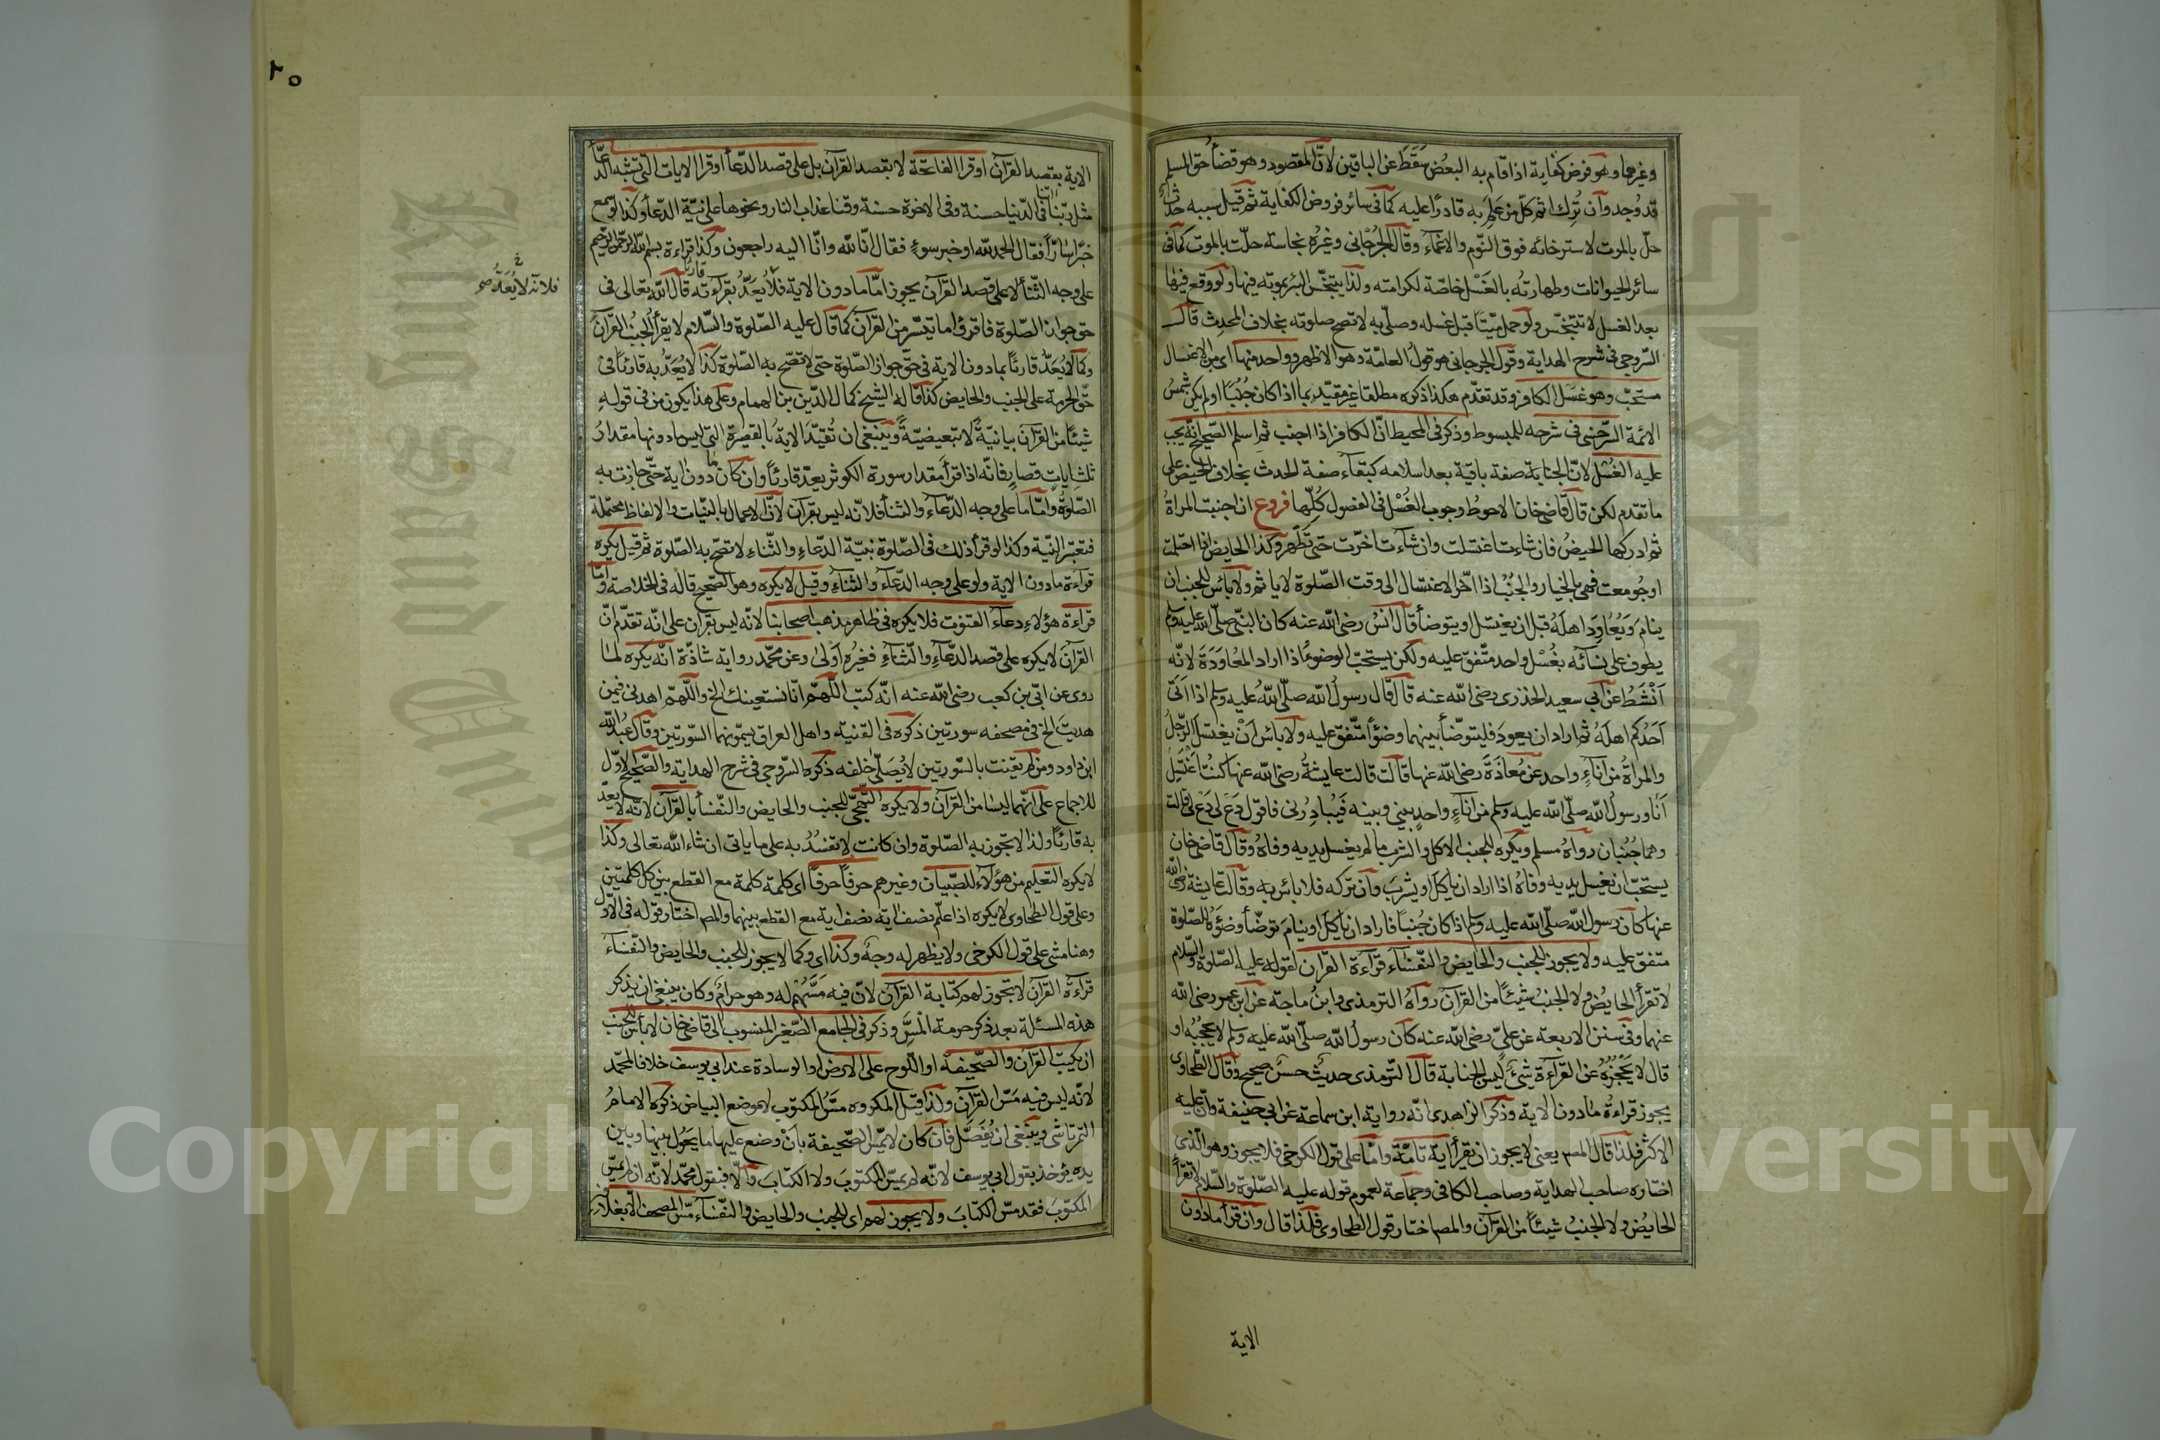 وغيرهما وهو فرض كفاية اذا قام به البعض سقط عن الباقين لان المقصود وهو قضاء حق المسلم
قد وجد وان ترك اثم كل من علم به قادرا عليه كما في سائر فروض الكفاية ثم قيل سببه حدث
حل بالموت لاسترخائه فوق النوم والاغماء وقال الجرجاني وغيره نجاسة حلت بالموت كما في
سائر الحيوانات وطهارته بالغسل خاصة لكرامته ولذا يتنجس البئر بموته فيها ولو وقع فيها
بعد الغسل لا تتنجس ولو حمل ميتا قبل غسله وصلى به لا تصح صلوته بخلاف المحدث قال
السروجي في شرح الهداية وقول الجرجاني هو قول العامة وهو الاظهر وواحد منها اى من الاغسال
مستحب وهو غسل الكافر وقد تقدم هكذا ذكره مطلقا غير مقيد بما اذا كان جنبا او لم يكن شمس
الائمة السرخسي في شرحه للمبسوط وذكر في المحيط ان الكافر اذا اجنب ثم اسلم الصحيح انه يجب
عليه الغسل لان الجنابة صفة باقية بعد اسلامه كبقاء صفة الحدث بخلاف الحيض على
ما تقدم لكن قال قاضي خان الاحوط وجوب الغسل في الفصول كلها فروع ان اجنبت المراة
ثم ادركها الحيض فان شاءت اغتسلت وان شاءت اخرت حتى تطهر وكذا الحايض اذا احتلمت
او جومعت فهي بالخيار والجنب اذا اخر الاغتسال الى وقت الصلوة لا ياثم ولا باس للجنب ان
ينام ويعاود اهله قبل ان يغتسل او يتوضأ قال انس رضي الله عنه كان النبي صلى الله عليه وسلم
يطوف على نسائه بغسل واحد متفق عليه ولكن يستحب الوضوء اذا اراد المعاودة لانه
انشط عن ابي سعيد الخدري رضي الله عنه قال قال رسول الله صلى الله عليه وسلم اذا اتى
احدكم اهله ثم اراد ان يعود فليتوضأ بينهما وضوأ متفق عليه ولا باس ان يغتسل الرجل
والمراة من اناء واحد عن معاذة رضي الله عنها قالت قالت عايشة رضي الله عنها كنت اغتسل
انا ورسول الله صلى الله عليه وسلم من اناء واحد بيني وبينه فيبادرني فاقول دع لي دع لي قالت
وهما جنبان رواه مسلم ويكره للجنب الاكل والشرب ما لم يغسل يديه وفاه وقال قاضي خان
يستحب ان يغسل يديه وفاه اذا اراد ان ياكل او يشرب وان تركه فلا باس به وقالت عايشة رضي الله
عنها كان رسول الله صلى الله عليه وسلم اذا كان جنبا فاراد ان ياكل او ينام توضأ وضوءه للصلوة
متفق عليه ولا يجوز للجنب والحايض والنفساء قراءة القران لقوله عليه الصلوة والسلام
لا تقرأ الحايض ولا الجنب شيئا من القران رواه الترمذي وابن ماجة عن ابن عمر رضي الله
عنهما وفي سنن الاربعة عن علي رضي الله عنه كان رسول الله صلى الله عليه وسلم لا يحجبه او
قال لا يحجزه عن القراءة شئ ليس الجنابة قال الترمذي حديث حسن صحيح وقال الطحاوي
يجوز قراءة مادون الاية وذكر الزاهدي انه رواية ابن سماعة عن ابي حنيفة وان عليه
الاكثر فلذا قال المص يعني لا يجوز ان يقرأ اية تامة واما على قول الكرخي فلا يجوز وهو الذي
اختاره صاحب الهداية وصاحب الكافي وجماعة لعموم قوله عليه الصلوة والسلام لا تقرأ
الحايض ولا الجنب شيئا من القران والمص اختار قول الطحاوي فلذا قال وان قرأ مادون
الاية
٢٥
الاية بقصد القران او قرا الفاتحة لا بقصد القران بل على قصد الدعاء او قرا الايات التي تشبه الدعاء
مثل ربنا اتنا في الدنيا حسنة وفي الاخرة حسنة وقنا عذاب النار ونحوها على نية الدعاء وكذا لو سمع
خبرا سارا فقال الحمد لله او خبر سوء فقال انا لله وانا اليه راجعون وكذا قراءة بسم الله الرحمن الرحيم
على وجه الثناء لا على قصد القران يجوز اما مادون الاية فلا يعد بقراءته قارئا قال الله تعالى في
فلانه لا يعد
حق جواز الصلوة فاقرؤا ما تيسر من القران كما قال عليه الصلوة والسلام لا يقرأ الجنب القران
وكما لا يعد قارئا بمادون الاية في حق جواز الصلوة حتى لا تصح به الصلوة كذا لا يعد به قارئا في
حق الحرمة على الجنب والحايض كذا قاله الشيخ كمال الدين بن الهمام وعلى هذا يكون من في قوله
شيئا من القران بيانية لا تبعيضية وينبغي ان تقيد الاية بالقصيرة التي ليس مادونها مقدار
ثلث ايات قصار فانه اذا قرأ مقدار سورة الكوثر يعد قارئا وان كان دون اية حتى جازت به
الصلوة واما ما على وجه الدعاء والثناء فلانه ليس بقران لان الاعمال بالنيات والالفاظ محتملة
فتعتبر النية وكذا لو قرأ ذلك في الصلوة بنية الدعاء والثناء لا تصح به الصلوة ثم قيل يكره
قراءة مادون الاية ولو على وجه الدعاء والثناء وقيل لا يكره وهو الصحيح قاله في الخلاصة واما
قراءة هؤلاء دعاء القنوت فلا يكره في ظاهر مذهب اصحابنا لانه ليس بقران على انه تقدم ان
القران لا يكره على قصد الدعاء والثناء فغيره اولى وعن محمد رواية شاذة انه يكره لما
روى عن ابي بن كعب رضي الله عنه انه كتب اللهم انا نستعينك الخ واللهم اهدني فيمن
هديت الخ في مصحفه سورتين ذكره في القنية واهل العراق يسمونهما السورتين وقال عبد الله
ابن داود ومن لم يقنت بالسورتين لا يصلى خلفه ذكره السروجي في شرح الهداية والصحيح الاول
للاجماع على انهما ليسا من القران ولا يكره التهجي للجنب والحايض والنفسأ بالقران لانه لا يعد
به قارئا ولذا لا تجوز به الصلوة وان كانت لا تفسد به على ما ياتي ان شاء الله تعالى وكذا
لا يكره التعليم من هؤلاء للصبيان وغيرهم حرفا حرفا اى كلمة كلمة مع القطع بين كل كلمتين
وعلى قول الطحاوي لا يكره اذا علم نصف اية نصف اية مع القطع بينهما والمص اختار قوله في الاول
وهنا مشى على قول الكرخي ولا يظهر له وجه وكذا اى وكما لا يجوز للجنب والحايض والنفساء
قراءة القران لا تجوز لهم كتابة القران لان فيه مسهم له وهو حرام وكان ينبغي ان يذكر
هذه المسئلة بعد ذكر حرمة المس وذكر في الجامع الصغير المنسوب الى قاضي خان لا باس للجنب
ان يكتب القران والصحيفة او اللوح على الارض او الوسادة عند ابي يوسف خلافا لمحمد
لانه ليس فيه مس القران ولذا قيل المكروه مس المكتوب لا موضع البياض ذكره الامام
التمرتاشي وينبغي ان يفصل فان كان لا يمس الصحيفة بان وضع عليها ما يحول بينها وبين
يده يؤخذ بقول ابي يوسف لانه لم يمس المكتوب ولا الكتاب والا فبقول محمد لانه ان لم يمس
المكتوب فقد مس الكتاب ولا يجوز لهم اى للجنب والحايض والنفساء مس المصحف الا بغلافه
Copyright © King Saud University